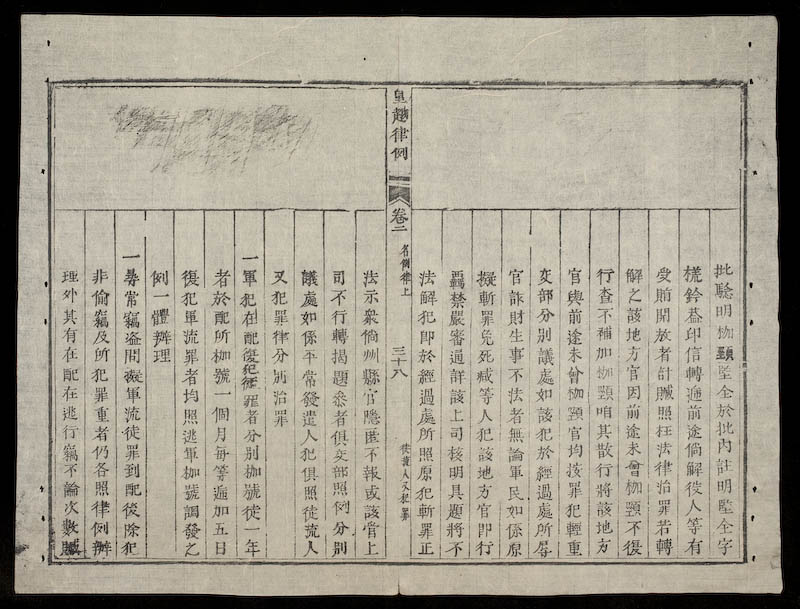 批驗明枷䫙墜全於批內註明墜全字
槼鈐葢印信轉遞前途倘解役人等有
受賄開放者計贓照枉法律治罪若轉
解之該地方官因前途未曾枷䫙不復
行查不補加枷䫙咱其散行將該地方
官與前途未曾枷䫙官均按罪犯輕重
交部分別議處如該犯於經過處所辱
官詠財生事不法者無論軍民如係原
擬斬罪免死減等人犯該地方官即行
羈禁嚴審過詳該上司核明具題將不
法解犯即於經過處所照原犯斬罪正
皇越律例
卷二
名例律上
三十八
徒流人又犯罪
法示衆倘州縣官隱匿不報或該管上
司不行轉揭題叅者俱交部照例分別
議處如係平常發遣人犯俱照徒流人
又犯罪律分別治罪
一軍犯在配復犯徒罪者分別枷號徒一年
者於配所枷號一個月每等遞加五日
復犯軍流罪者均照逃軍枷號調發之
例一體辦理
一尋常竊盗問擬軍流徒罪到配後除犯
非偷竊及所犯罪重者仍各照律例辦
理外其有在配在逃行竊不論次數贓